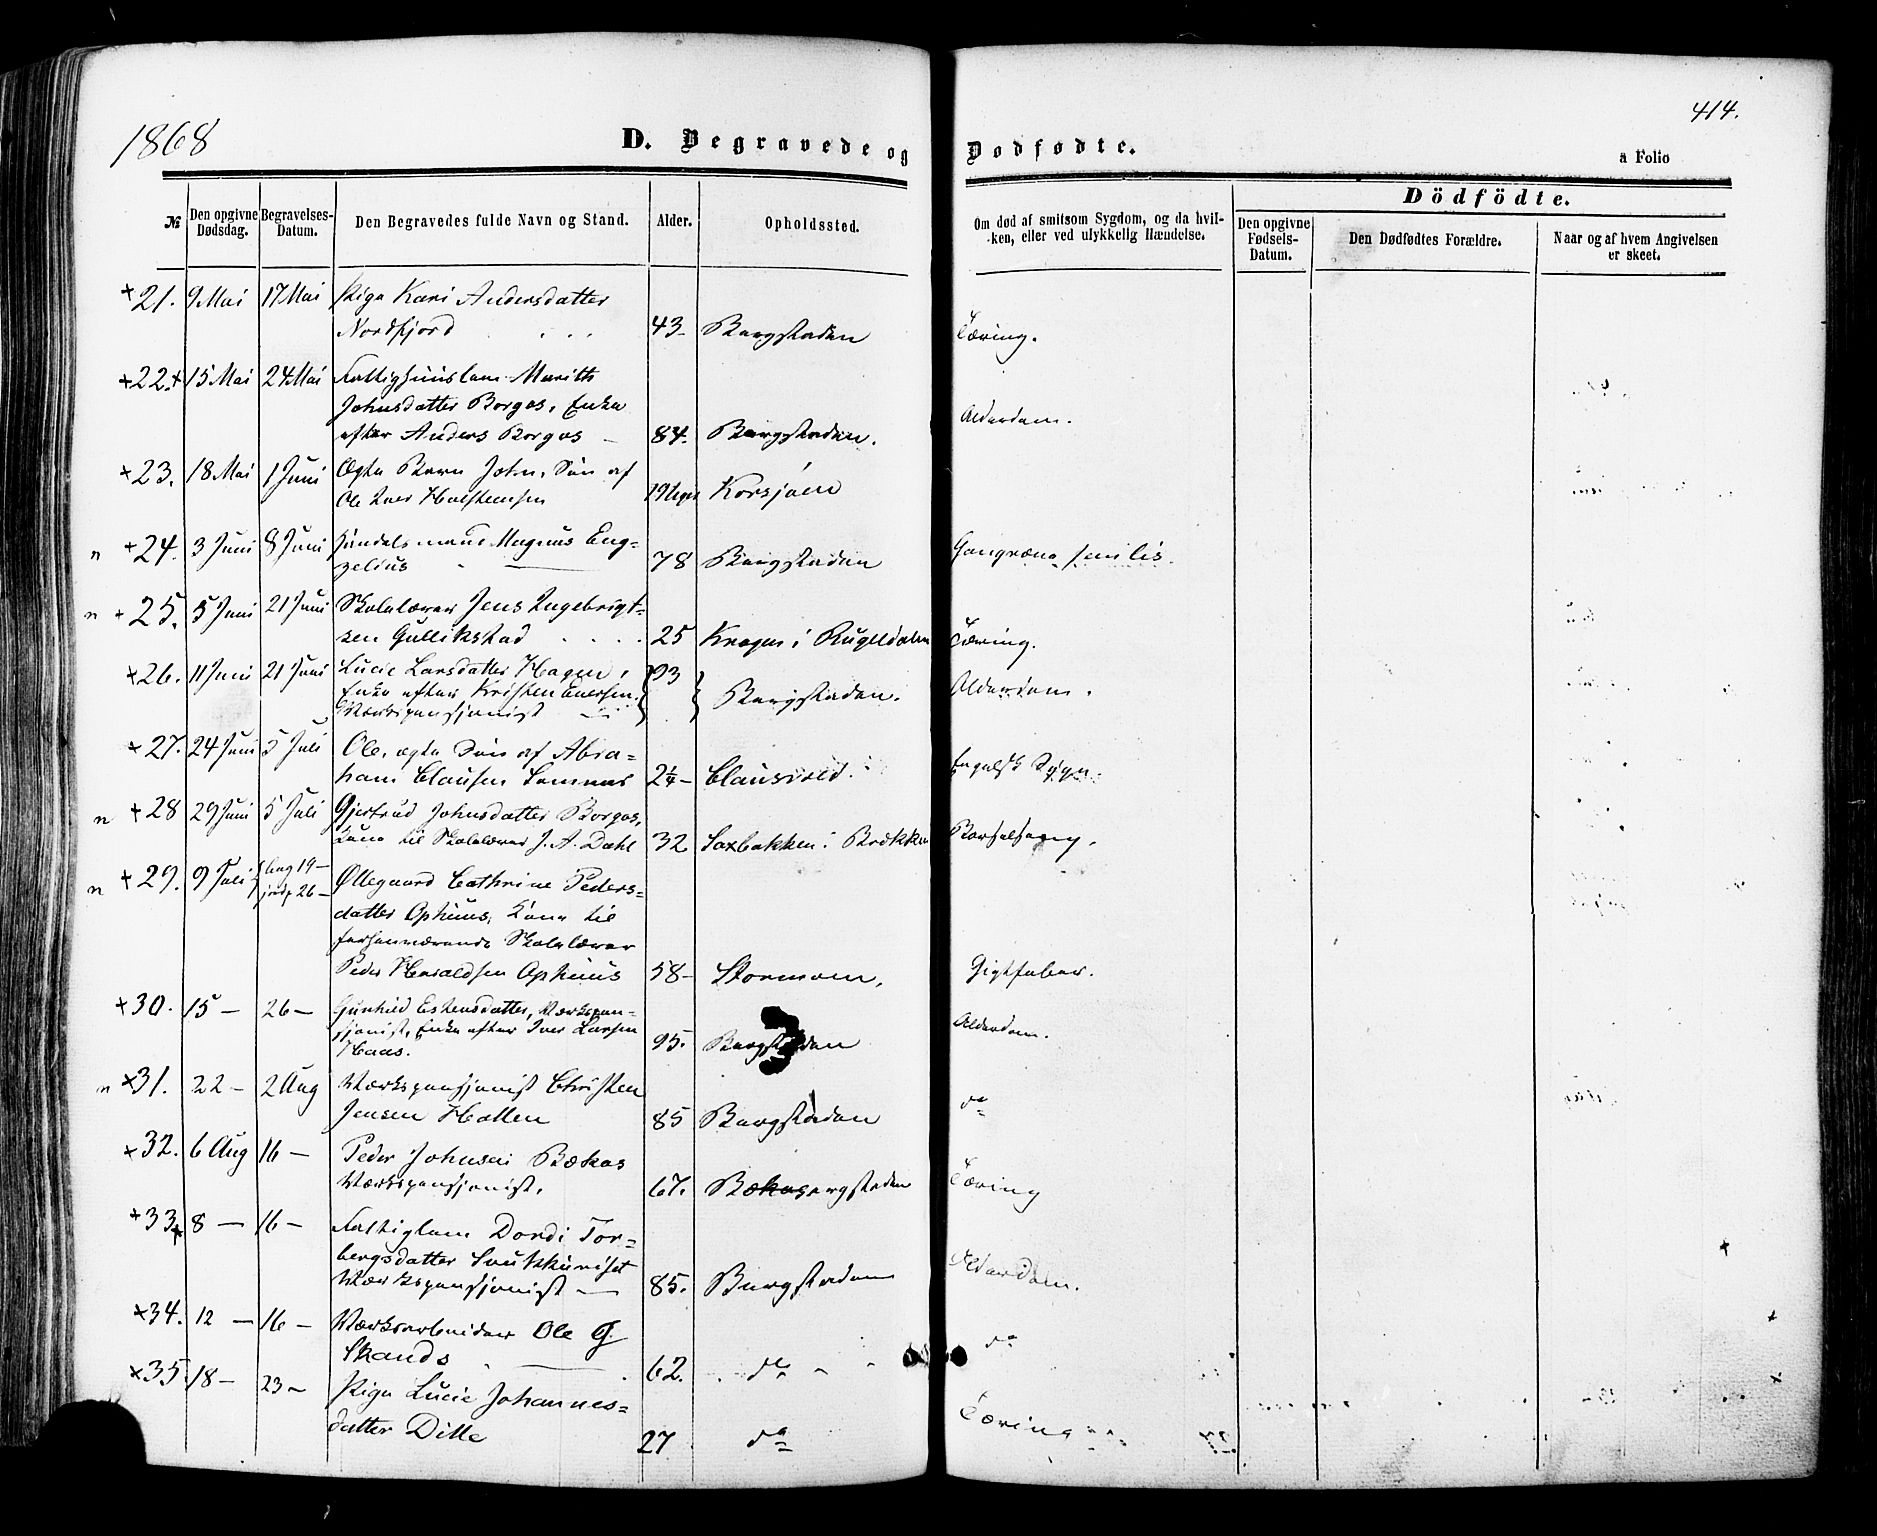 1868
D. Begravede og Dødfødte.
414.
a Folio
№
Den opgivne Dødsdag.
Begravelses-Datum.
Den Begravedes fulde Navn og Stand.
Alder.
Opholdssted.
Om død af smitsom Sygdom, og da hvil-
ken, eller ved ulykkelig Hændelse.
Dödfödte.
Den opgivne Fødsels-Datum.
Den Dødfødtes Forældre.
Naar og af hvem Angivelsen er skeet.
+21. 9 Mai 17 Mai Pige Kari Andersdatter
Nordfjord 43- Bergstaden Tæring.
+22.+ 15 Mai 24 Mai Fattighuuslem Marith
Johnsdatter Borgos, Enke
efter Anders Borgos – 84. Bergstaden. Alderdom.
+23. 18 Mai 1 Juni Ægte Barn John, Søn af
Ole Iver Holstensen 19 Uger Korsjøen
n +24. 3 Juni 8 Juni Handelsmand Magnus Eng-
zelius 78 Bergstaden Gangræna senilis.
n +25. 5 Juni 21 Juni Skolelærer Jens Ingebrigt-
sen Gullikstad 25 Kragen i Rugeldalen Tæring.
+26. 11 Juni 21 Juni Lucie Larsdatter Hagen, 93
Enke efter Kristen Evensen. Bergstaden. Alderdom.
Værkspensjonist
+27. 24 Juni 5 Juli Ole, ægte Søn af Abra-
ham Clausen Somnes 2¼- Clausvold. Engelsk Syge.
n +28 29 Juni 5 Juli Gjertrud Johnsdatter Borgos,
Kone til Skolelærer J. A. Dahl 32 Saxbakken i Brekken Barselseng.
n +29. 9 Juli Beg 19– jordf 26– Øllegaard Cathrine Peders-
datter Ophuus, Kone til
forhenværende Skolelærer
Peder Haraldsen Ophuus 58- Stormoen. Gigtfeber.
+30. 15 – 26 – Gunhild Estensdatter, Værkspen-
sjonist, Enke efter Iver Larsen
Haas. 95. Bergstaden Alderdom.
n +31. 22 – 2 Aug Værkspensjonist Christen
Jensen Hatten 85 Bergstaden do
+32. 6 Aug 16 – Peder Johnsen Bækos
Værkspensjonist. 67. Bergstaden Tæring
+33+ 8 – 16 – Fattiglem Dordi Tor-
bergsdatter
Værkspensjonist – 85. Bergstaden Alderdom.
+34. 12 – 16 – Værksarbeider Ole G.
Skands 62. do do
+35. 18 – 23 – Pige Lucie Johannes-
datter Dille 27 do Tæring